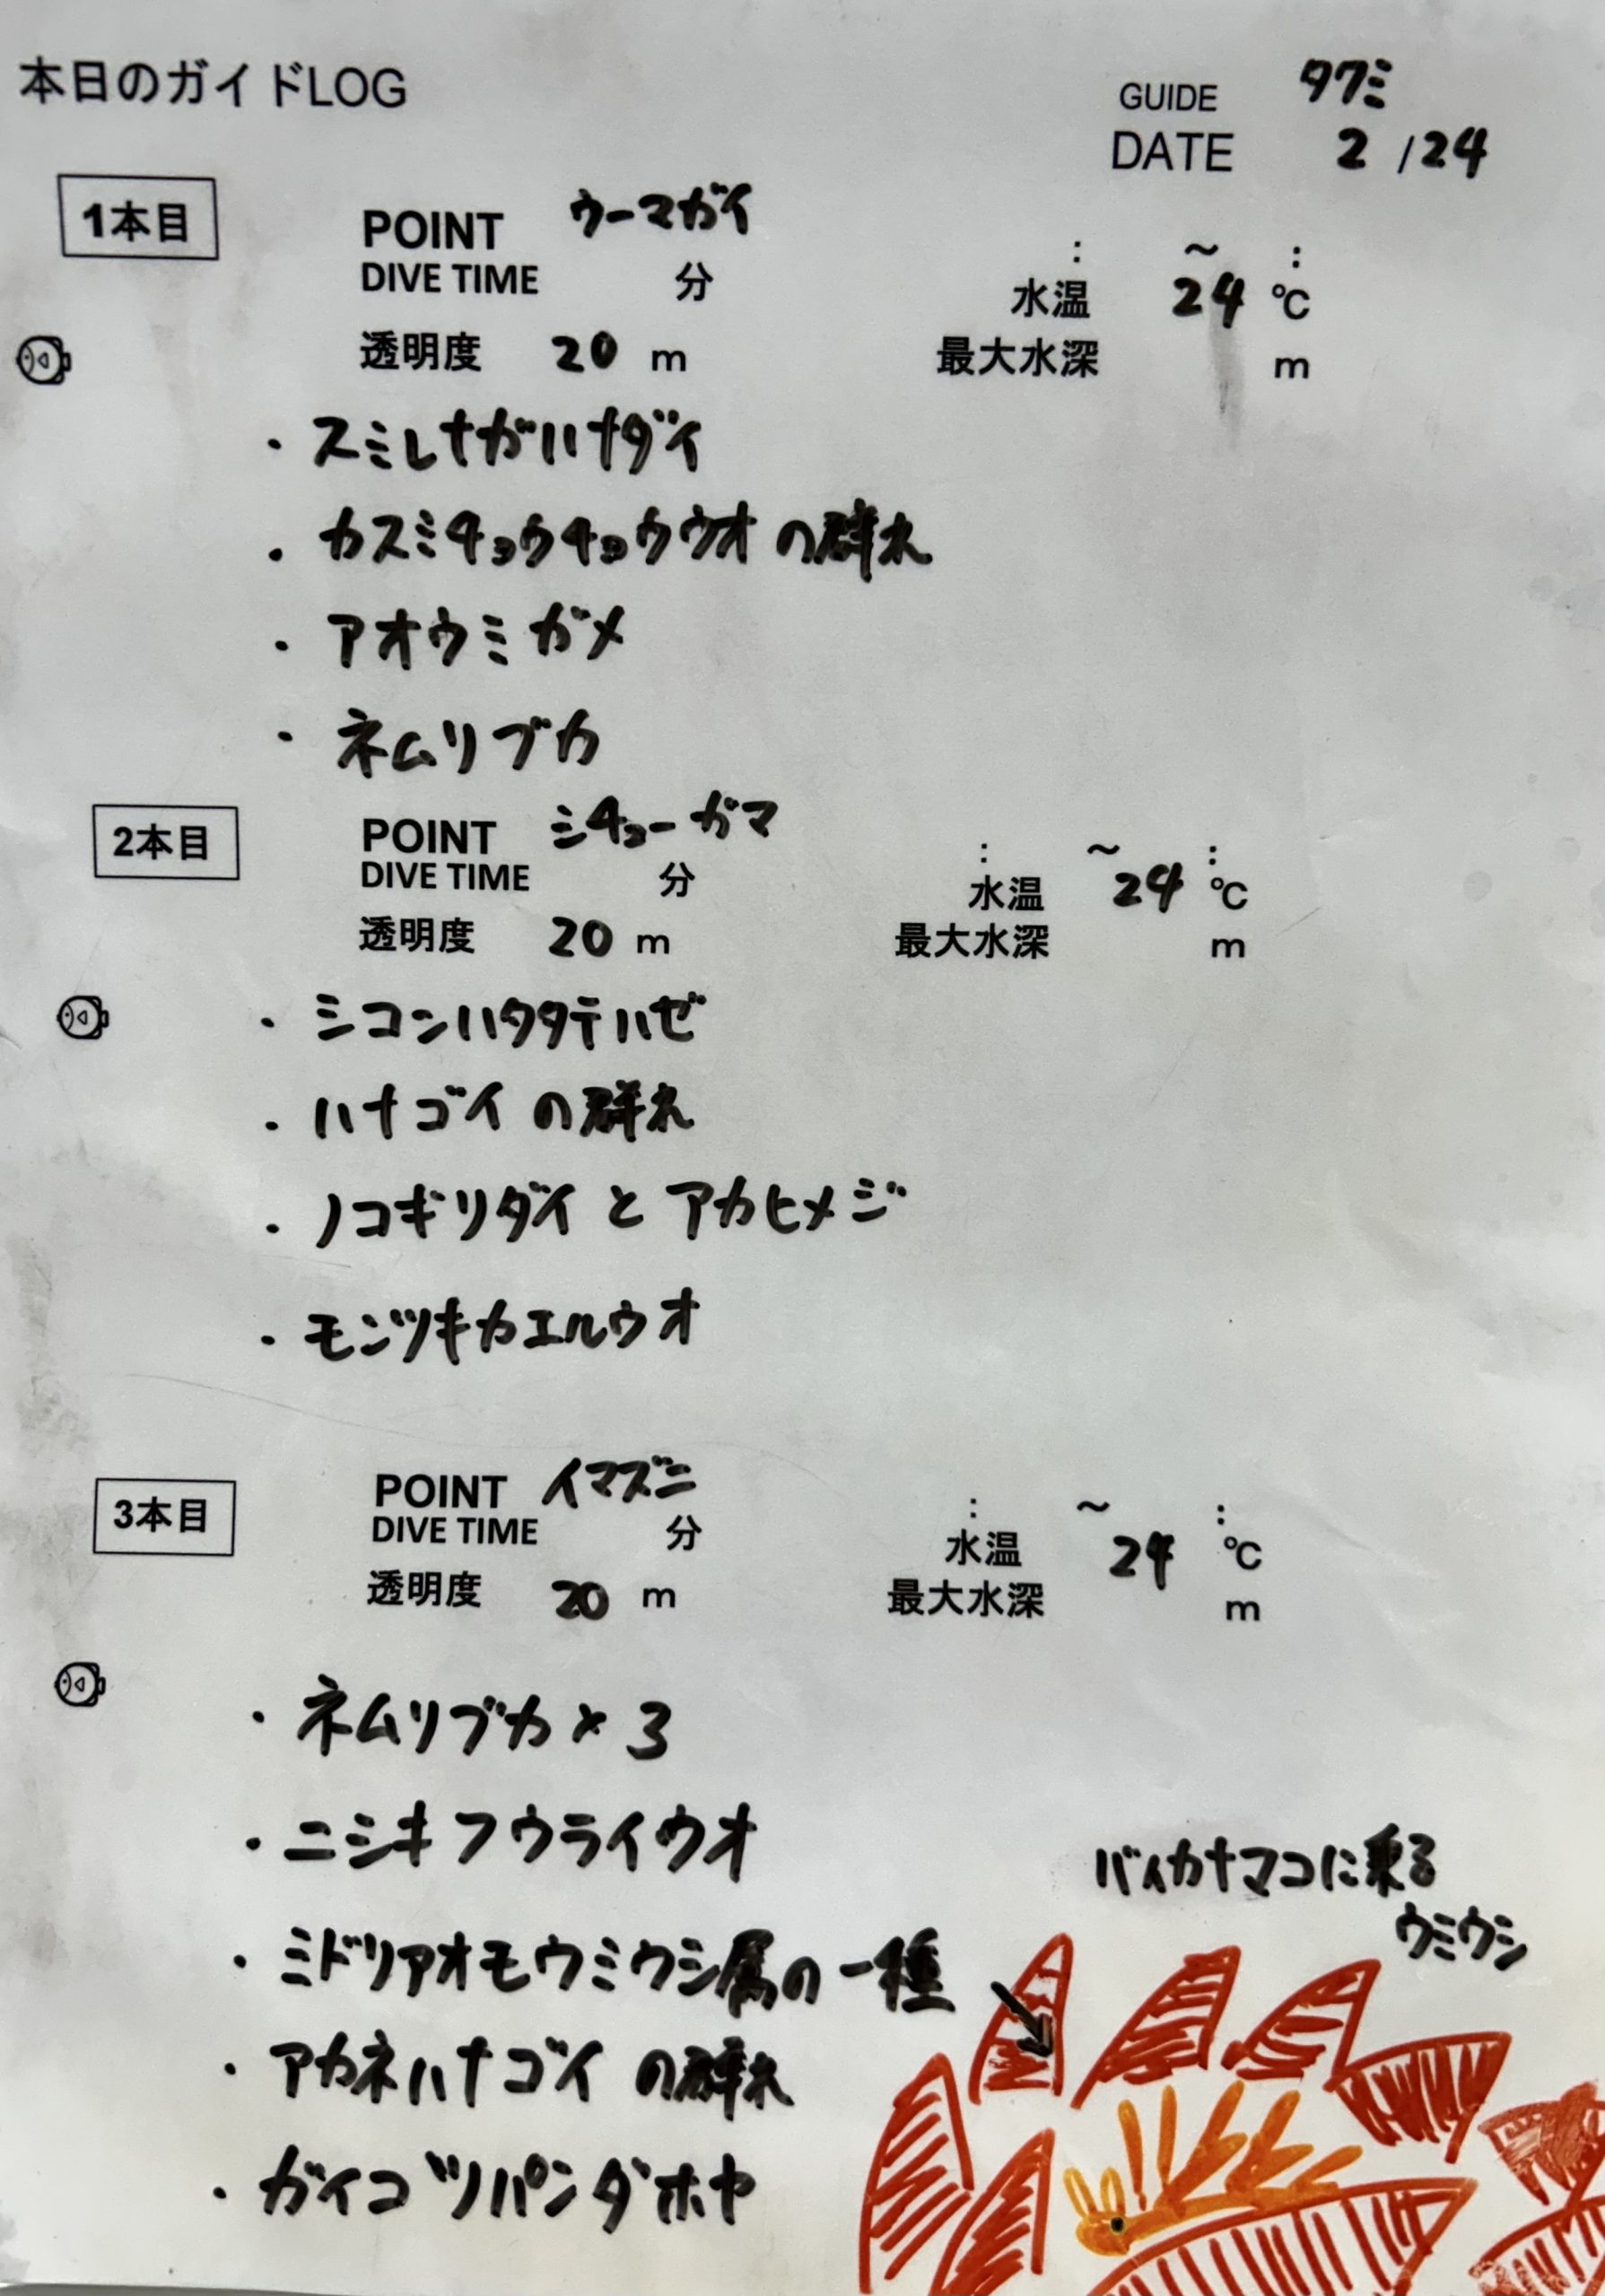 本日のガイドLOG
GUIDE タクミ
DATE 2/24
1本目
POINT ウーマガイ
: ~ :
DIVE TIME 分 水温 24 ℃
透明度 20 m 最大水深 m
・スミレナガハナダイ
・カスミチョウチョウウオの群れ
・アオウミガメ
・ネムリブカ
2本目
POINT シチューガマ
: ~ :
DIVE TIME 分 水温 24 ℃
透明度 20 m 最大水深 m
・シコンハタタテハゼ
・ハナゴイの群れ
・ノコギリダイとアカヒメジ
・モンツキカエルウオ
3本目
POINT イマズニ
: ~ :
DIVE TIME 分 水温 24 ℃
透明度 20 m 最大水深 m
・ネムリブカ×3
・ニシキフウライウオ
・ミドリアオモウミウシ属の一種
・アカネハナゴイの群れ
・ガイコツパンダホヤ
バイカナマコに乗る
ウミウシ